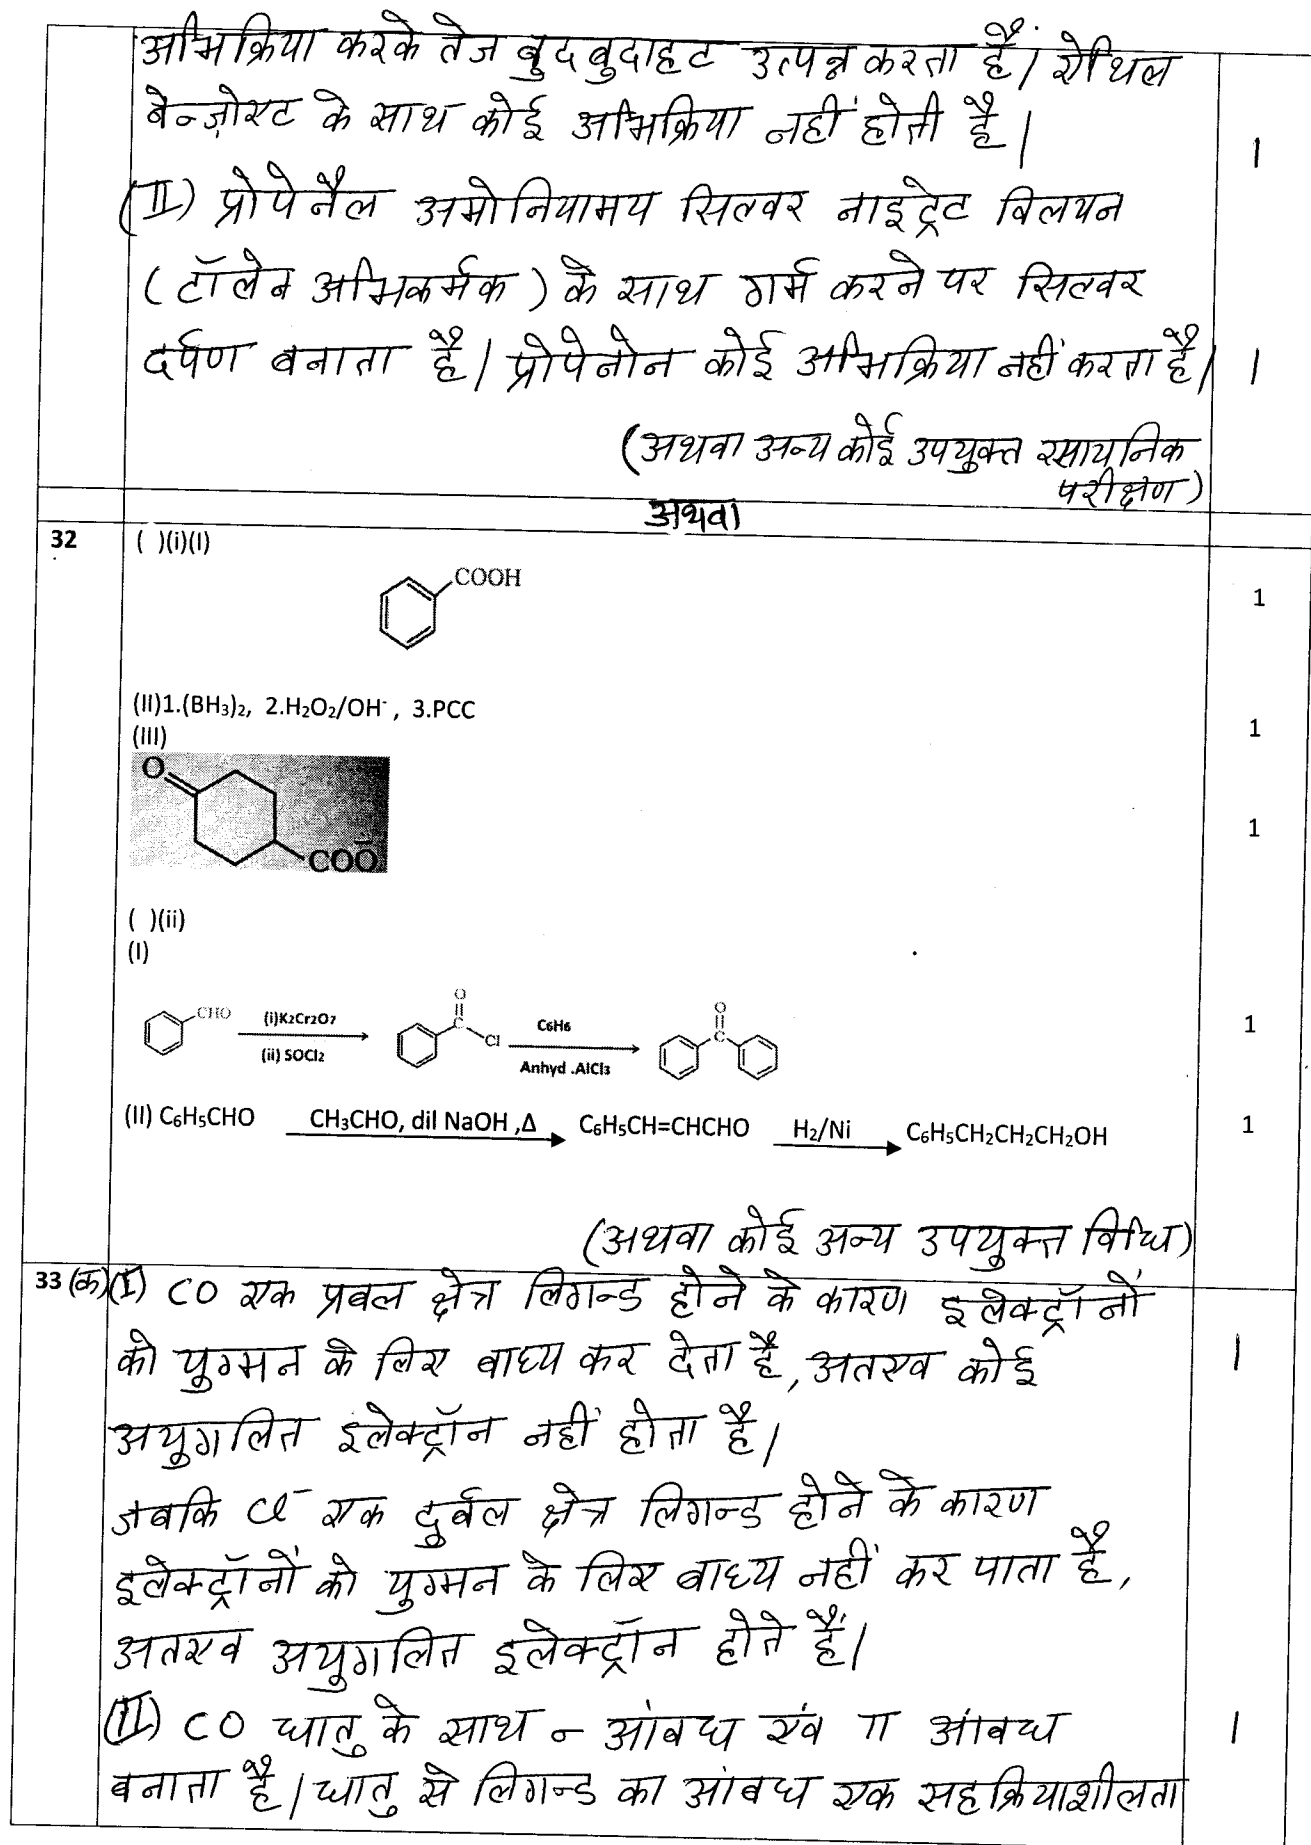 अभिक्रिया करके तेज बुदबुदाहट उत्पन्न करता है। ऐथिल
बेन्ज़ोएट के साथ कोई अभिक्रिया नहीं होती है।
1
(II) प्रोपेनैल अमोनियामय सिल्वर नाइट्रेट विलयन
(टॉलेन अभिकर्मक) के साथ गर्म करने पर सिल्वर
दर्पण बनाता है। प्रोपेनोन कोई अभिक्रिया नहीं करता है। 1
(अथवा अन्य कोई उपयुक्त रसायनिक
परीक्षण)
अथवा
32 ( )(i)(I)
COOH
1
(II)1.(BH₃)₂, 2.H₂O₂/OH⁻, 3.PCC 1
(III)
O
COO⁻
1
( )(ii)
(I)
CHO (i)K₂Cr₂O₇ (ii) SOCl₂ O C Cl C₆H₆ Anhyd .AlCl₃ O C 1
(II) C₆H₅CHO CH₃CHO, dil NaOH ,Δ C₆H₅CH=CHCHO H₂/Ni C₆H₅CH₂CH₂CH₂OH 1
(अथवा कोई अन्य उपयुक्त विधि)
33 (क)(I) CO एक प्रबल क्षेत्र लिगन्ड होने के कारण इलेक्ट्रॉनों
को युग्मन के लिए बाध्य कर देता है, अतएव कोई 1
अयुगलित इलेक्ट्रॉन नहीं होता है।
जबकि Cl⁻ एक दुर्बल क्षेत्र लिगन्ड होने के कारण
इलेक्ट्रॉनों को युग्मन के लिए बाध्य नहीं कर पाता है,
अतएव अयुगलित इलेक्ट्रॉन होते हैं।
(II) CO धातु के साथ σ आंबध एंव π आंबध 1
बनाता है। धातु से लिगन्ड का आंबध एक सहक्रियाशीलता